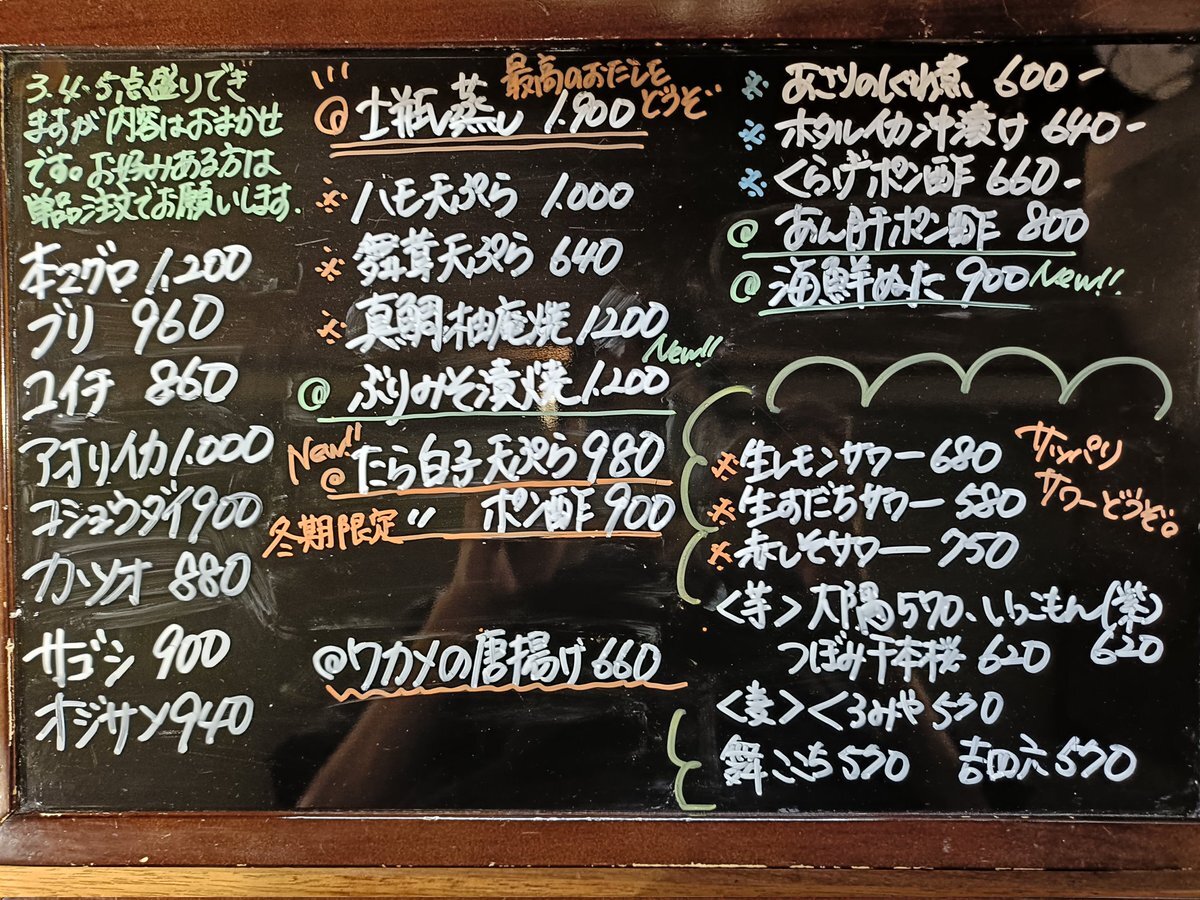 3.4.5点盛りでき
ますが内容はおまかせ
です。お好みある方は
単品注文でお願いします.
本マグロ 1.200
ブリ 960
ユイチ 860
アオリイカ 1.000
コショウダイ 900
カツオ 880
サゴシ 900
オジサン 940
最高のおだしを
どうぞ
◎土瓶蒸し 1.900
※ハモ天ぷら 1.000
※舞茸天ぷら 640
※真鯛柚庵焼 1200
New!!
◎ぶりみそ漬焼 1.200
New!!
◎たら白子天ぷら 980
冬期限定 〃 ポン酢 900
◎ワカメの唐揚げ 660
※あさりのしぐれ煮 600-
※ホタルイカ沖漬け 640-
※くらげポン酢 660-
◎あん肝ポン酢 800
◎海鮮ぬた 900 New!!
サッパリ
サワーどうぞ。
※生レモンサワー 680
※生すだちサワー 580
※赤しそサワー 750
<芋>大陽570、いっこもん(紫)
つぼみ千本桜 620 620
<麦>くろみや 570
舞ここち570 吉四六570